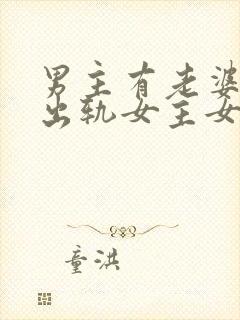 男主有老婆
出轨女主女
童洪